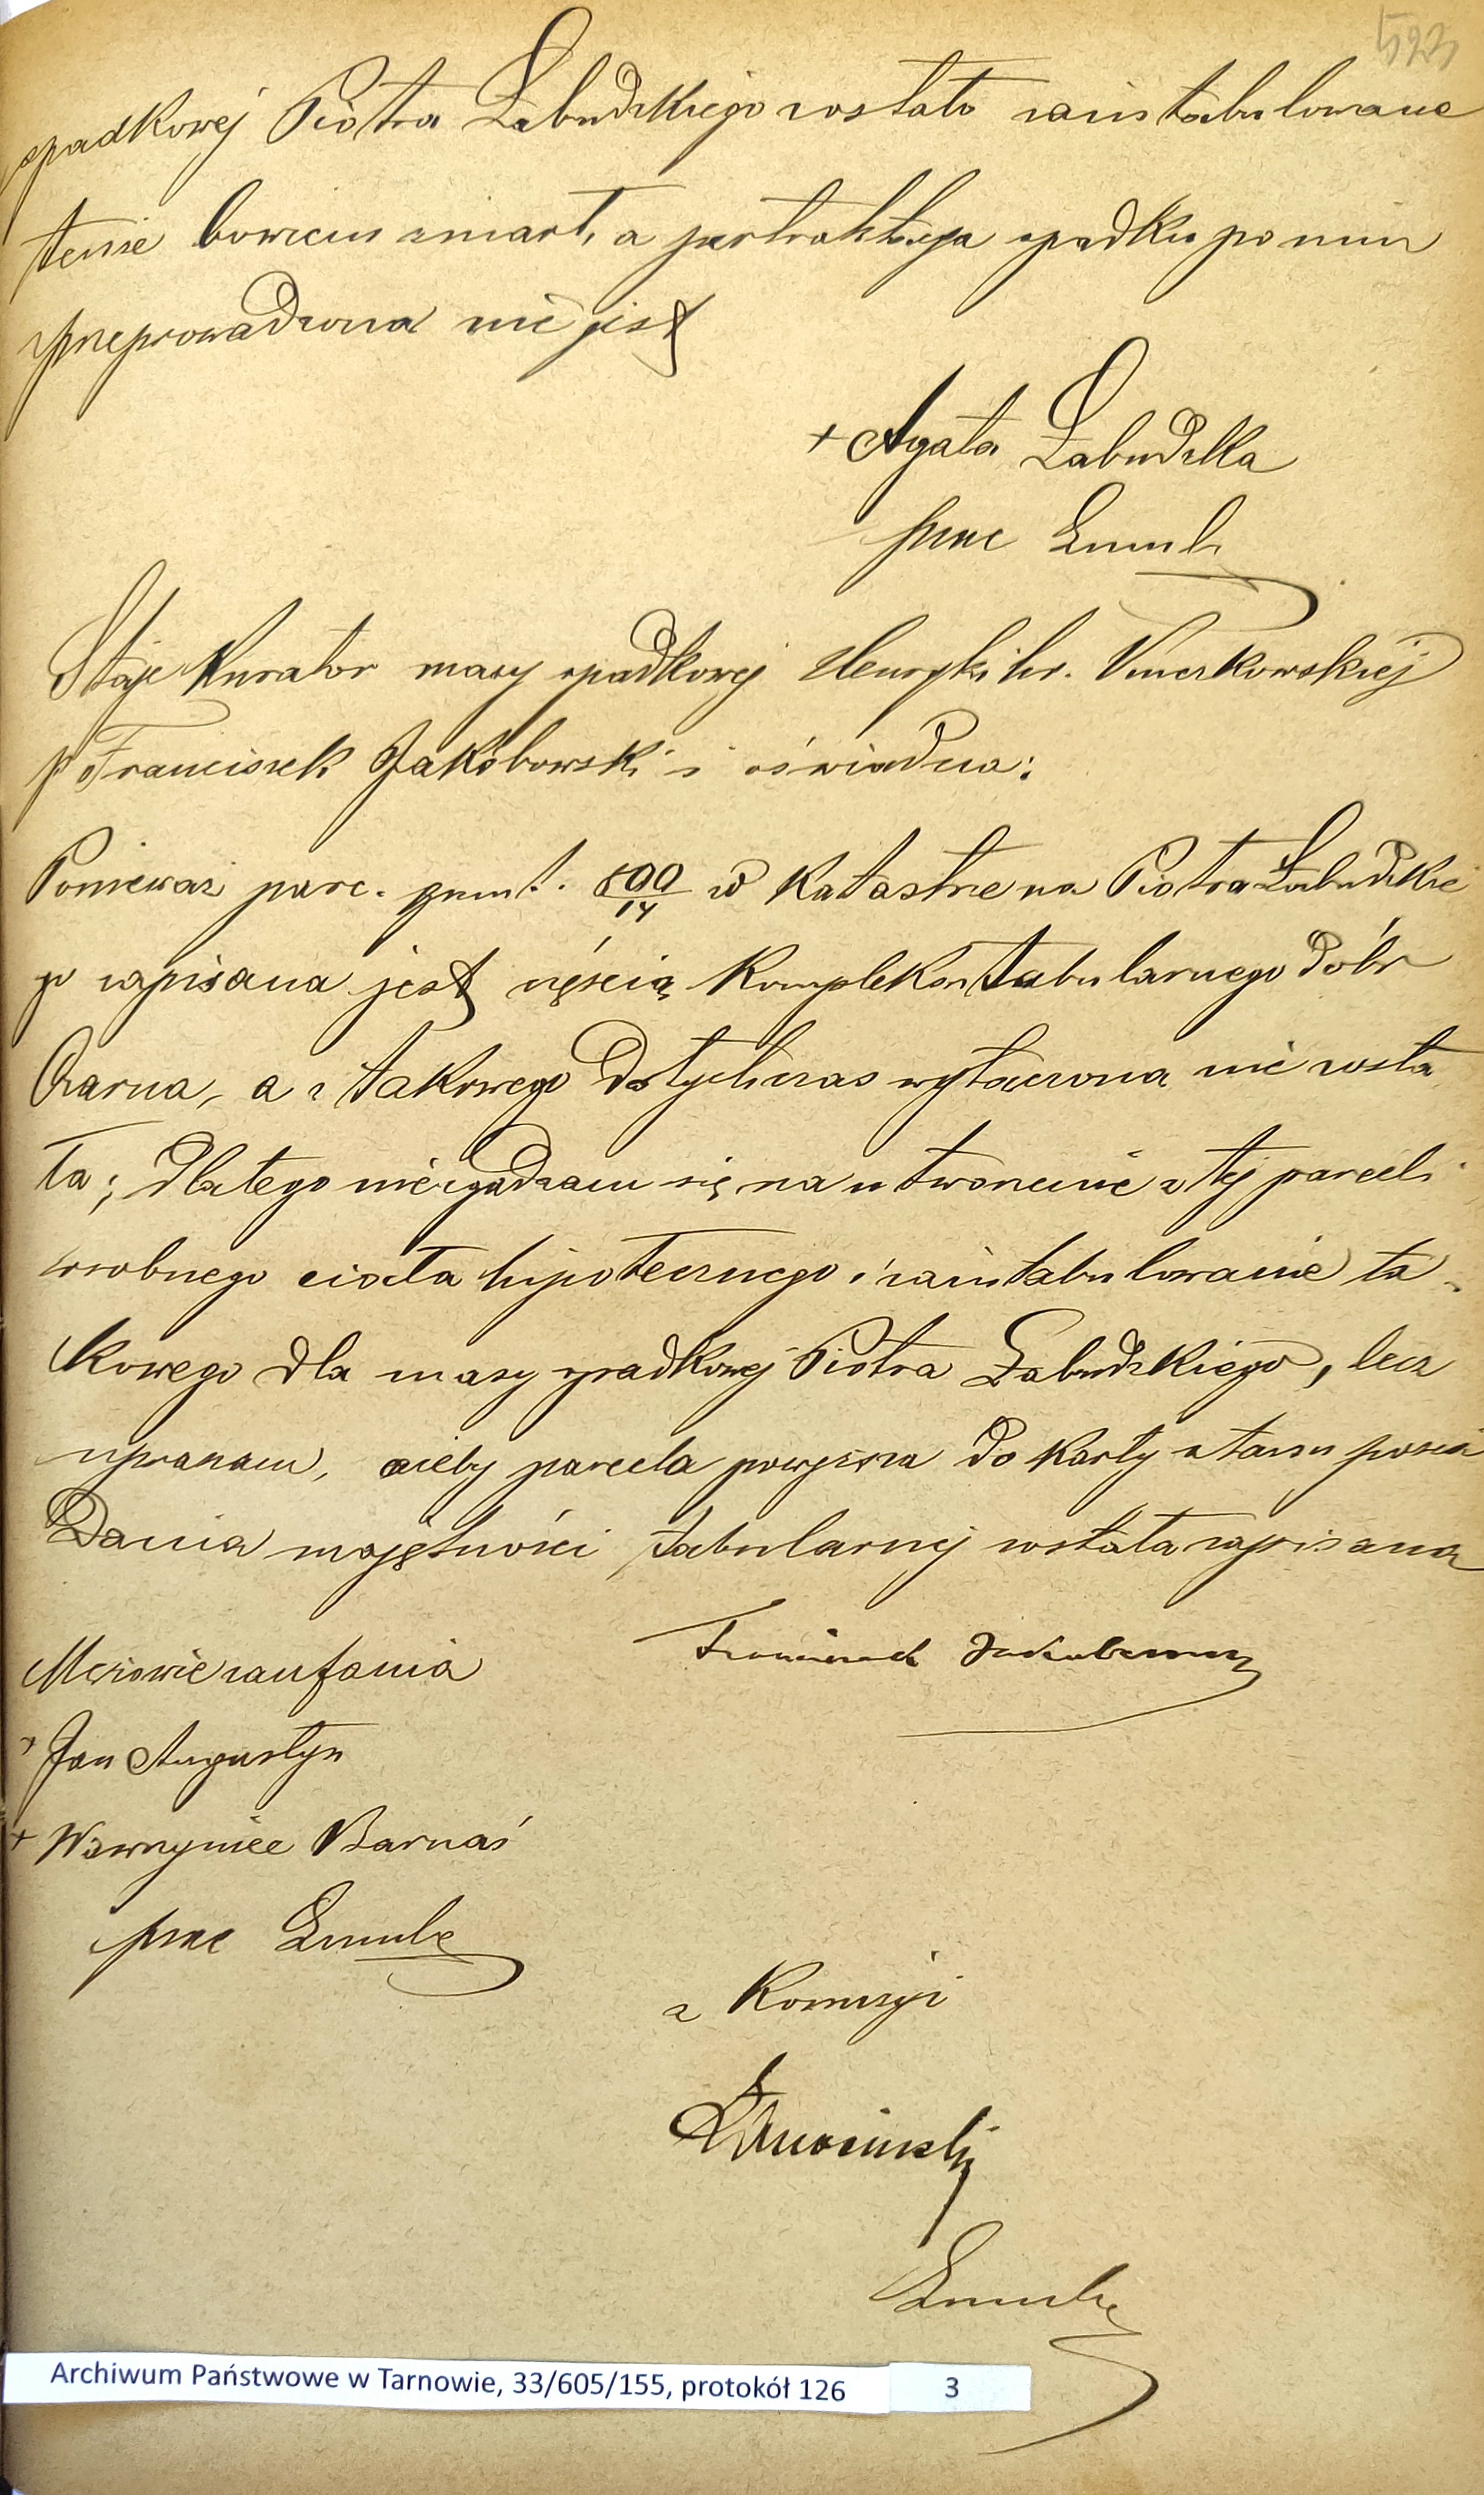 523
spadkowej Piotra Łabudzkiego zostało zaintabulowane
tenże bowiem zmarł, a pertraktacya spadku po nim
przeprowadzona nie jest
+ Agata Łabudzka
przez
Staje Kurator masy spadkowej Henryki hr.
p Franciszek Jakóbowski i oświadcza:
Ponieważ parc. grunt. 800/14 w katastrze na Piotra Łabudzkie
go zapisana jest częścią kompleksu tabularnego dóbr
Czarna, a z takowego dotychczas wyłączona nie zosta
ła; dlatego niezgadzam się na utworzenie z tej parceli
osobnego ciała hipotecznego i zaintabulowanie ta-
kowego dla masy spadkowej Piotra Łabudzkiego, lecz
upraszam, ażeby parcela powyższa do karty stanu posia
dania majętności tabularnej została zapisana
Mężowie zaufania
Franciszek Jakubowski
+ Jan Augustyn
+ Wawrzyniec Barnaś
przez
z Komisyi
Archiwum Państwowe w Tarnowie, 33/605/155, protokół 126 3